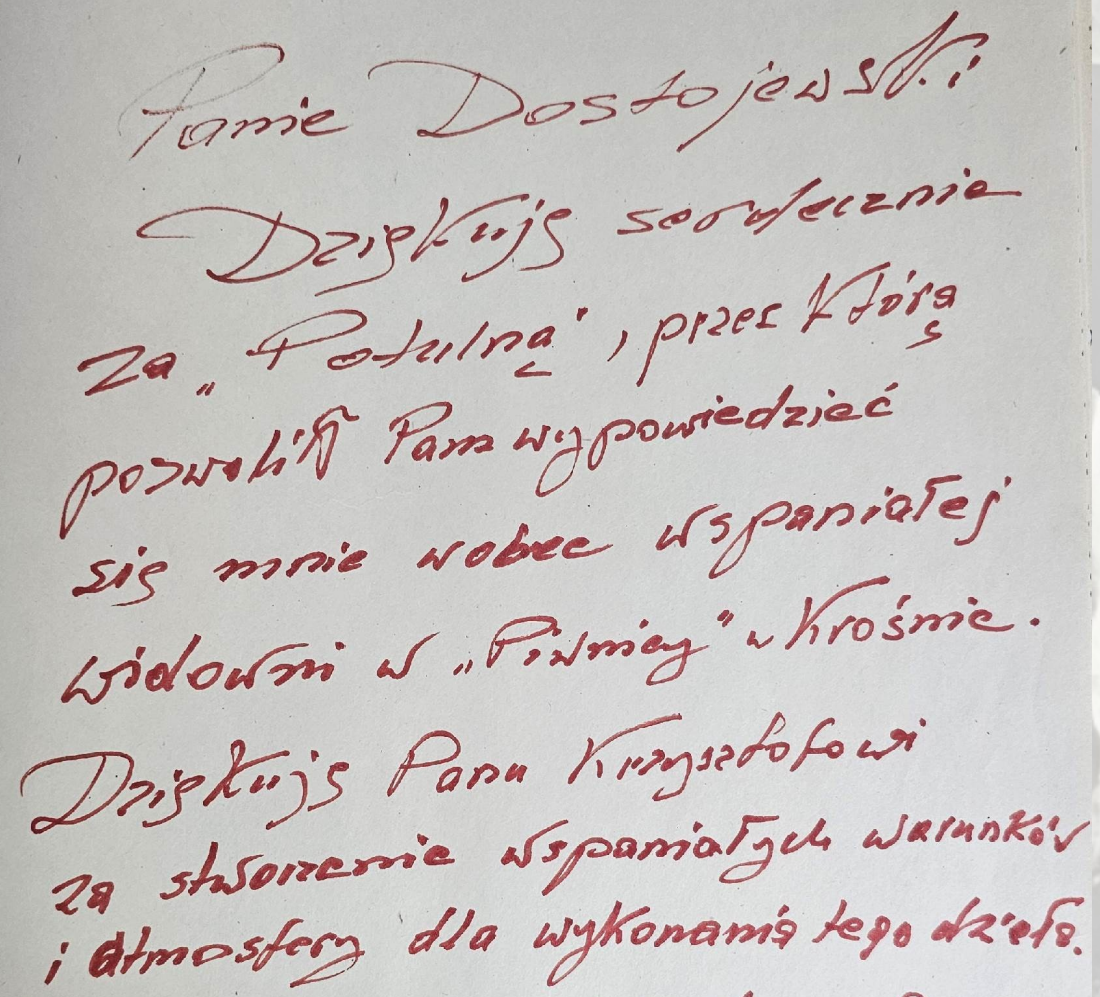 Panie Dostojewski
Dziękuję serdecznie
za „Potulną”, przez którą
pozwolił Pan wypowiedzieć
się mnie wobec wspaniałej
widowni w „Piwnicy” w Krośnie.
Dziękuję Panu Krzysztofowi
za stworzenie wspaniałych warunków
i atmosfery dla wykonania tego dzieła.